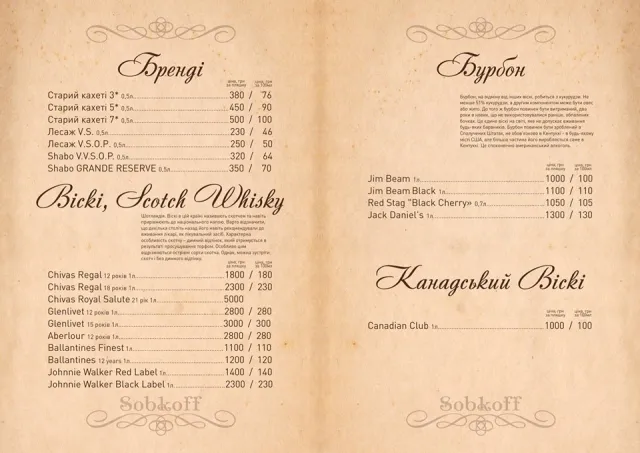 Бренді
ціна, грн за пляшку
ціна, грн за 100мл
Старий кахеті 3* 0,5л 380 / 76
Старий кахеті 5* 0,5л 450 / 90
Старий кахеті 7* 0,5л 500 / 100
Лесаж V.S. 0,5л 230 / 46
Лесаж V.S.O.P. 0,5л 250 / 50
Shabo V.V.S.O.P. 0,5л 320 / 64
Shabo GRANDE RESERVE 0,5л 350 / 70
Віскі, Scotch Whisky
ціна, грн за пляшку
ціна, грн за 100мл
Chivas Regal 12 років 1л 1800 / 180
Chivas Regal 18 років 1л 2300 / 230
Chivas Royal Salute 21 рік 1л 5000
Glenlivet 12 років 1л 2800 / 280
Glenlivet 15 років 1л 3000 / 300
Aberlour 12 років 1л 2800 / 280
Ballantines Finest 1л 1100 / 110
Ballantines 12 years 1л 1200 / 120
Johnnie Walker Red Label 1л 1400 / 140
Johnnie Walker Black Label 1л 2300 / 230
Sobkoff
Бурбон
ціна, грн за пляшку
ціна, грн за 100мл
Jim Beam 1л 1000 / 100
Jim Beam Black 1л 1100 / 110
Red Stag "Black Cherry» 0,7л 1050 / 105
Jack Daniel's 1л 1300 / 130
Канадський Віскі
ціна, грн за пляшку
ціна, грн за 100мл
Canadian Club 1л 1000 / 100
Sobkoff